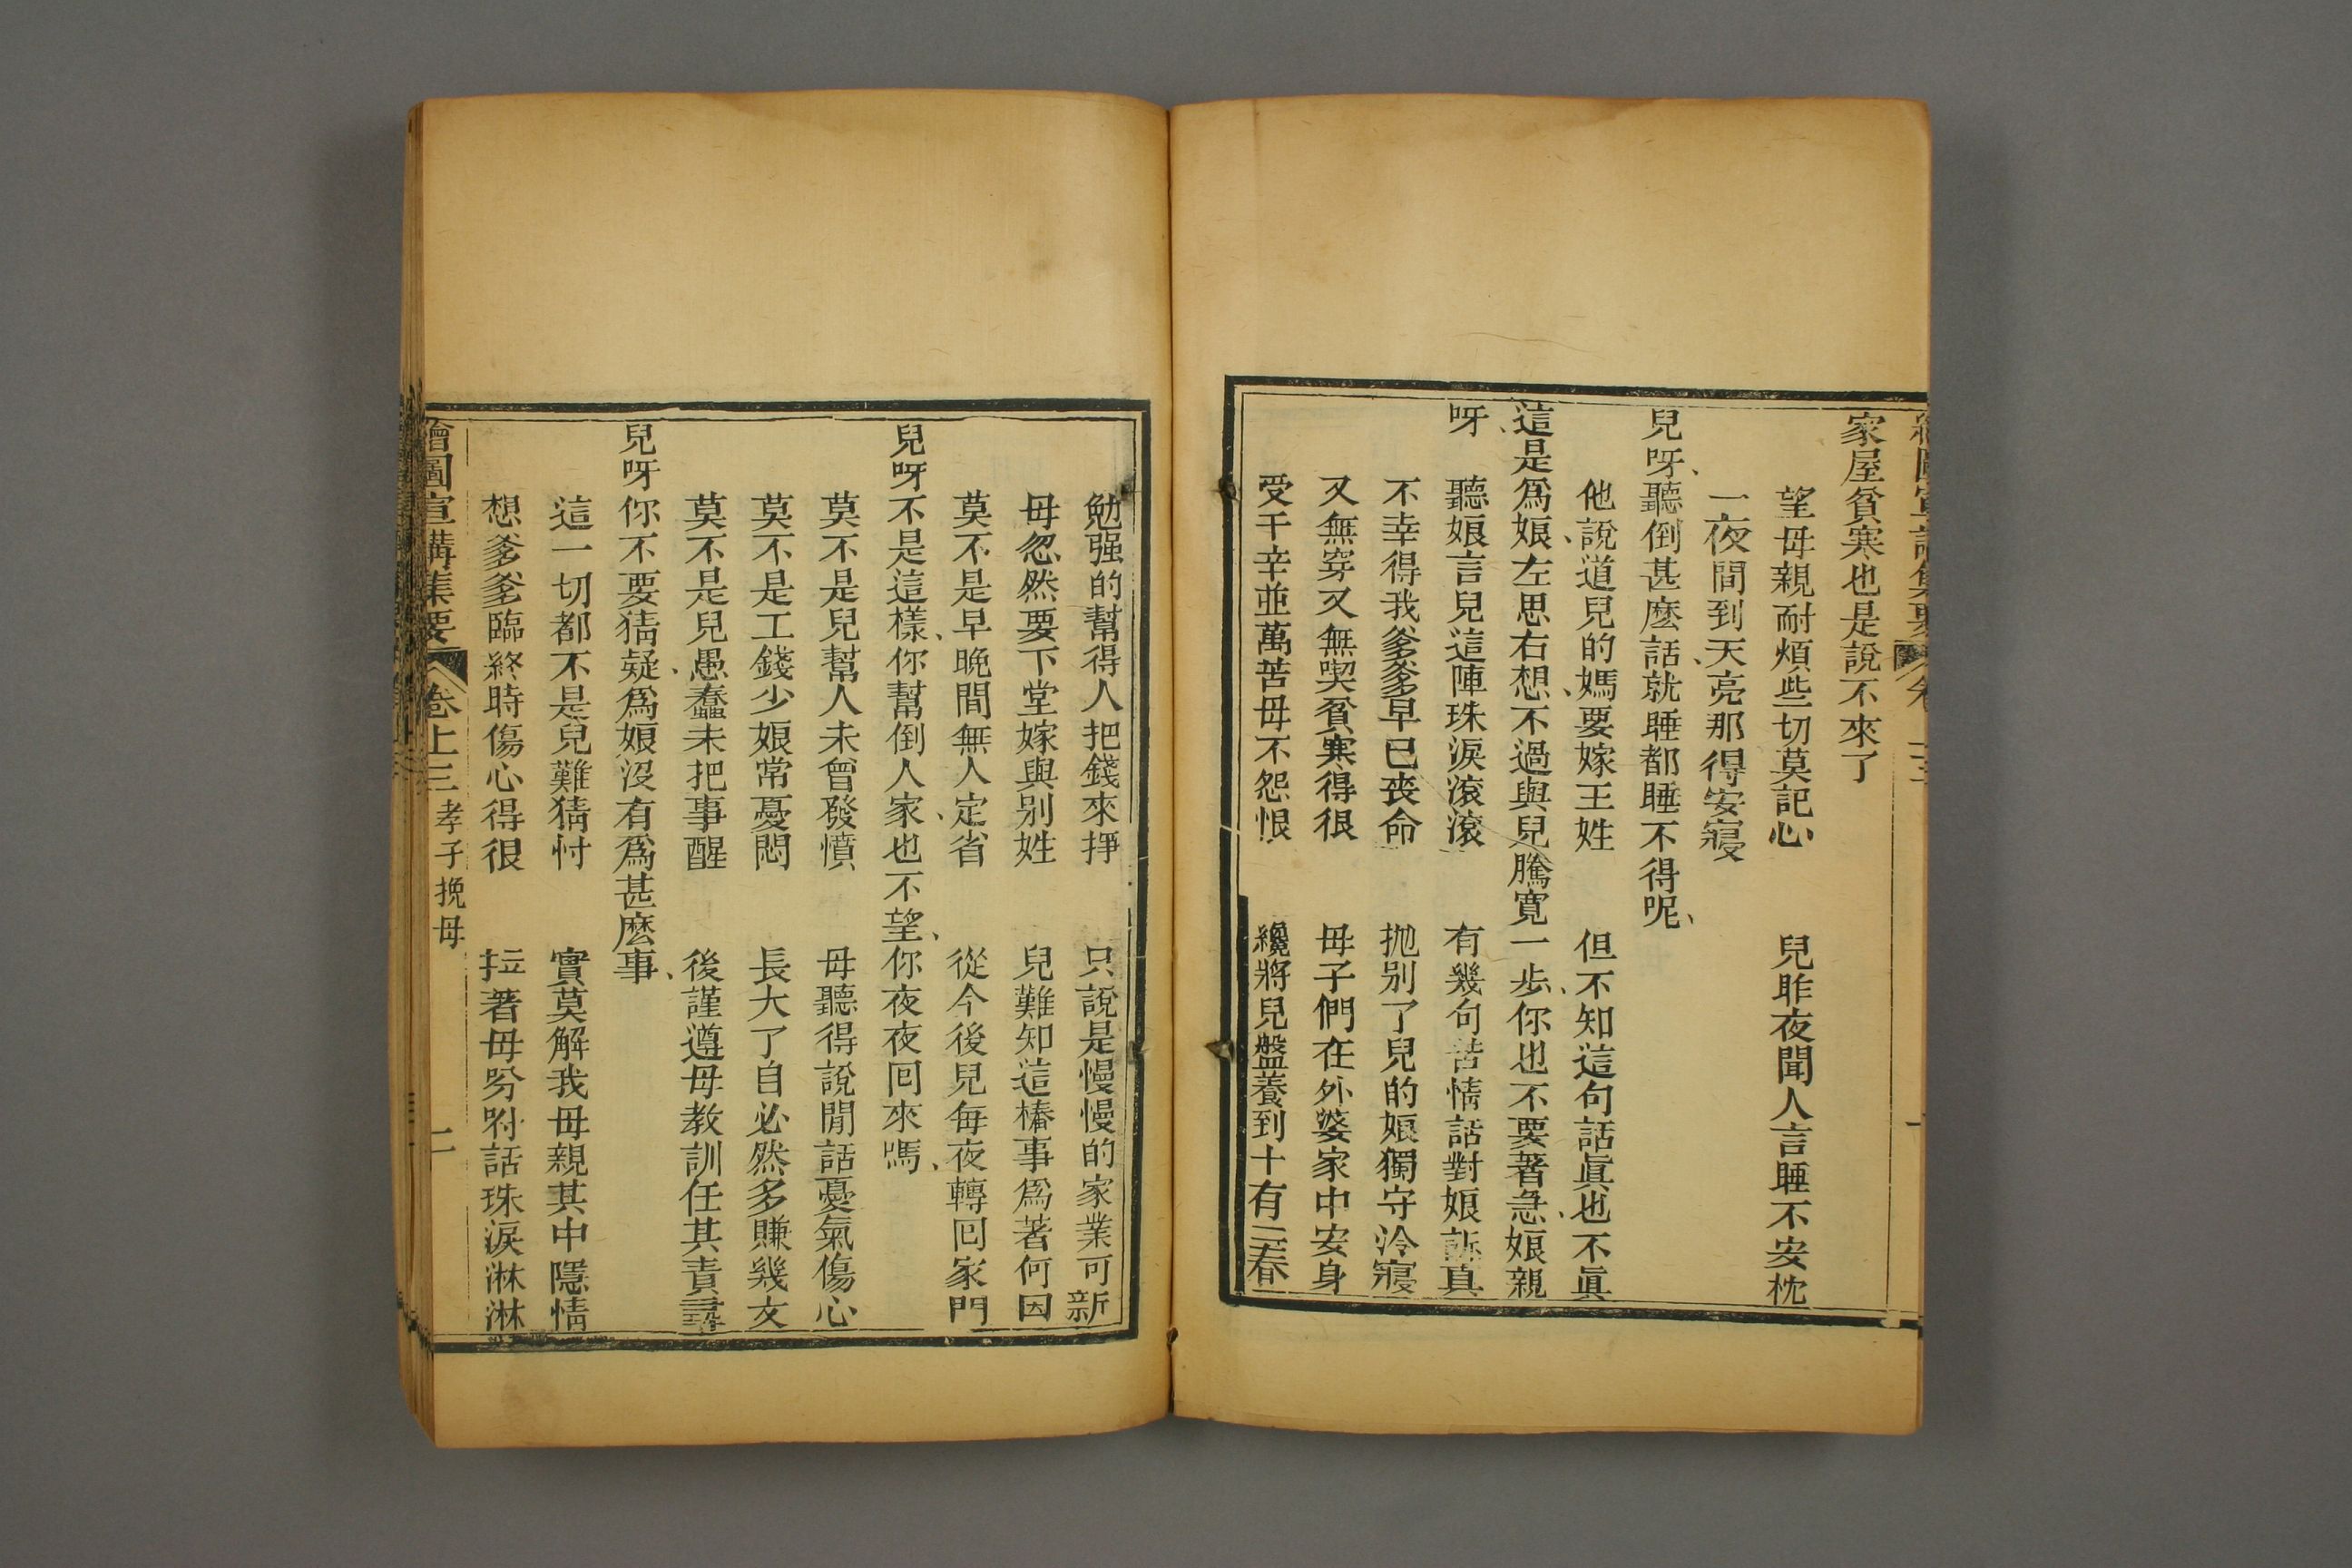 家屋貧寒也是說不來了
望母親耐煩些切莫記心　兒昨夜聞人言睡不安枕
一夜間到天亮那得安寢
兒呀、聽倒甚麽話、就睡都睡不得呢、
他說道兒的媽要嫁王姓　但不知這句話眞也不眞
這是爲娘、左思右想、不過與兒騰寬一步、你也不要著急、娘親
呀、聽娘言兒這陣珠淚滾滾　有幾句苦情話對娘訴真
不幸得我爹爹早已丧命　抛别了兒的娘獨守冷寢
又無穿又無喫貧寒得很　母子們在外婆家中安身
受千辛並萬苦母不怨恨　纔將兒盤養到十有三春
勉强的幫得人把錢來掙　只說是慢慢的家業可新
母忽然要下堂嫁與别姓　兒難知這樁事爲著何因
莫不是早晚間無人定省　從今後兒每夜轉回家門
兒呀不是這樣、你幫倒人家、也不望、你夜夜回來嗎、
莫不是兒幫人未曾發憤　母聽得說閒話憂氣傷心
莫不是工錢少娘常憂悶　長大了自必然多賺幾文
莫不是兒愚蠢未把事醒　後謹遵母教訓任其責
兒呀你不要猜疑、爲娘沒有爲甚麽事、
這一切都不是兒難猜忖　實莫解我母親其中隱情
想爹爹臨終時傷心得很　拉著母吩咐話珠淚淋淋
繪圖宣講集要　卷上三　孝子挽母　二